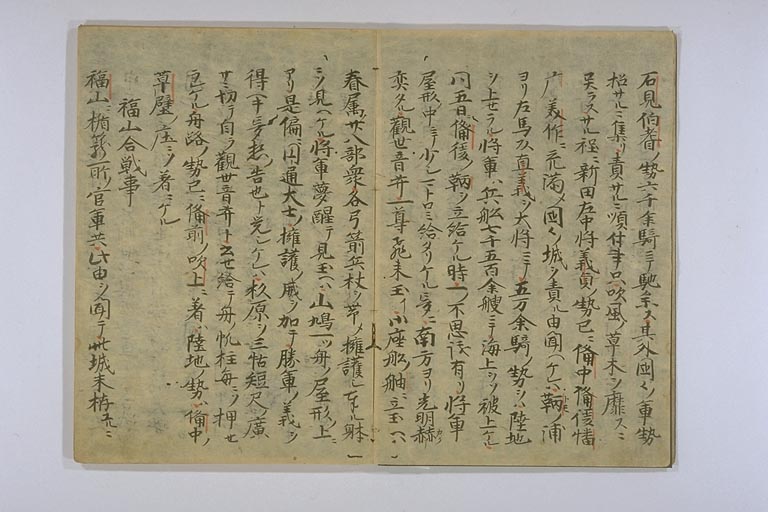 石見伯耆ノ勢六千余騎ニテ馳参ス其外国々ノ軍勢
招サルニ集リ責サルニ順付事只吹風ノ草木ヲ靡スニ
異ラスサル程ニ新田左中将義貞ノ勢已ニ備中備後播
广美作ニ充満メ国々ノ城ヲ責ル由聞ヘケレハ鞆ノ浦
ヨリ左馬頭直義ヲ大将ニテ五万余騎ノ勢ヲハ陸地
ヲ上セラル将軍ハ兵船七千五百余艘ニテ海上ヲソ被上ケル
同五日備後ノ鞆ヲ立給ケル時一ノ不思議有リ将軍
屋形ノ中ニテ少シマトロミ給タリケル夢ニ南方ヨリ光明赫
奕タル観世音井一尊飛来玉イ御座船ノ舳ニ立玉ヘハ
眷属廿八部衆各弓箭兵杖ヲ帯メ擁護シ奉ル躰
ヲソ見ヘケル将軍夢醒テ見玉ヘハ山鳩一ツ舟ノ屋形ノ上ニ
アリ是偏ニ円通大士ノ擁護ノ威ヲ加テ勝軍ノ義ヲ
得ヘキ夢想ノ告也ト覚シケレハ杉原ヲ三帖短尺ノ広
サニ切テ自ラ観世音井ト書セ給テ舟ノ帆柱毎ニソ押せ
ケル舟路ノ勢已ニ備前ノ吹上ニ著ハ陸地ノ勢ハ備中ノ
草壁ノ庄ニソ著ニケル
福山合戦事
福山ニ楯籠所ノ官軍共此由ヲ聞テ此城未拵